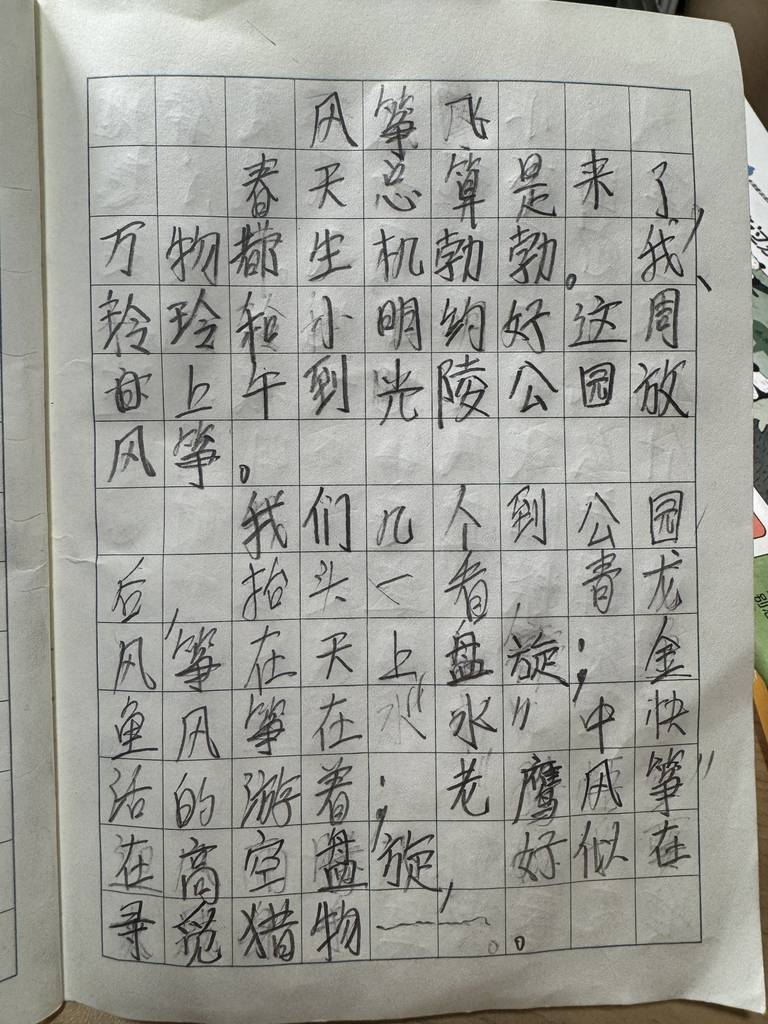 风筝飞
春天总算是来了,
万物都生机勃勃。我、
玲玲和小明约好这周
日上午到光陵公园放
风筝。
我们几个到公园
后,抬头一看,青龙
风筝在天上盘旋;金
鱼风筝在“水”中快
活的游着;老鹰风筝
在高空盘旋,好似在
寻觅猎物——。